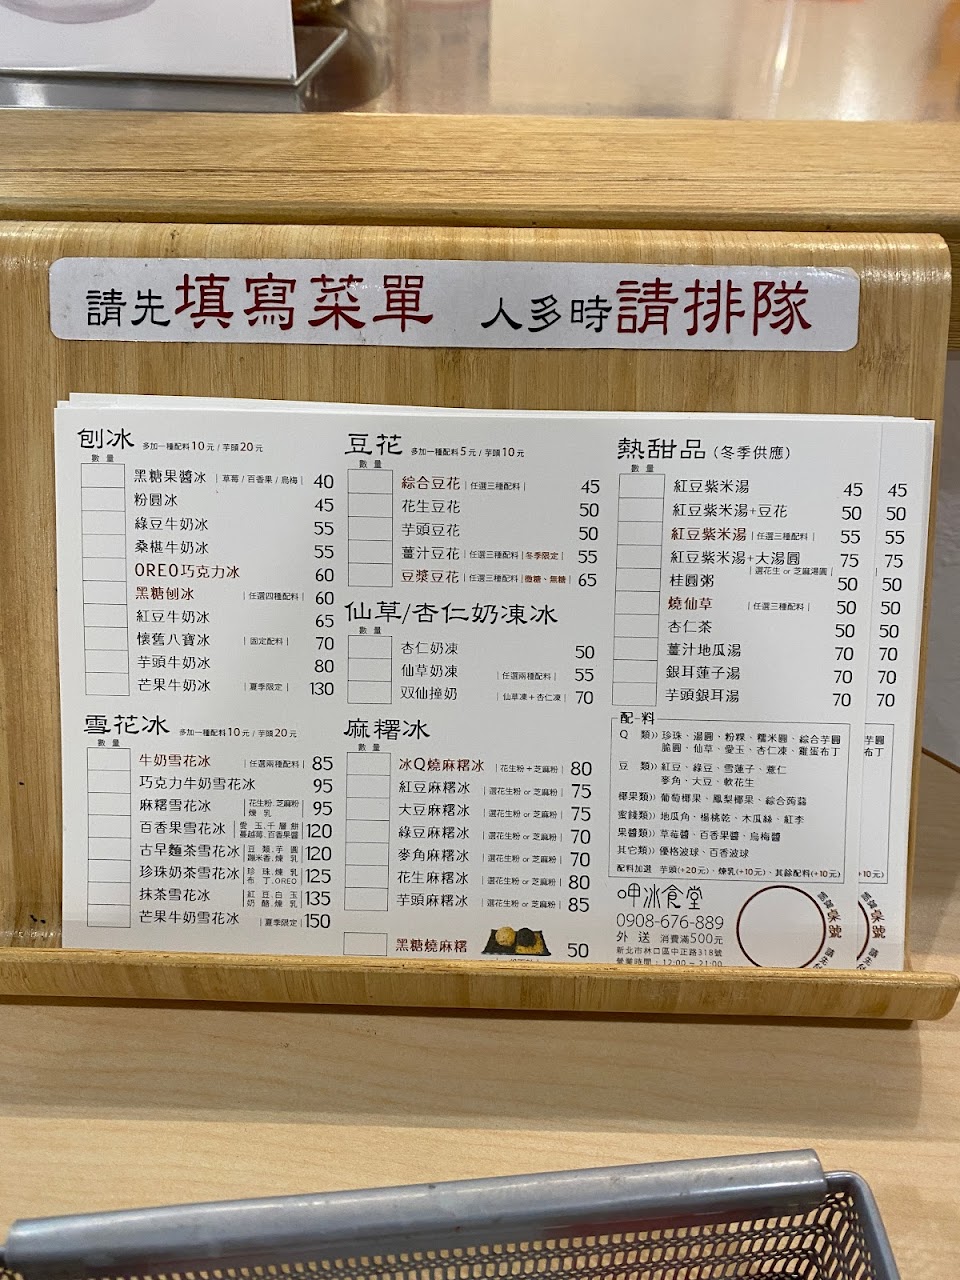 請先填寫菜單 人多時請排隊
刨冰 多加一種配料10元/芋頭20元
數量
黑糖果醬冰 |草莓/百香果/烏梅| 40
粉圓冰 45
綠豆牛奶冰 55
桑椹牛奶冰 55
OREO巧克力冰 60
黑糖刨冰 |任選四種配料| 60
紅豆牛奶冰 65
懷舊八寶冰 |固定配料| 70
芋頭牛奶冰 80
芒果牛奶冰 |夏季限定| 130
雪花冰 多加一種配料10元/芋頭20元
數量
牛奶雪花冰 |任選兩種配料| 85
巧克力牛奶雪花冰 95
麻糬雪花冰 |花生粉.芝麻粉 煉乳| 95
百香果雪花冰 |愛玉.千層餅 蔓越莓.百香果醬| 120
古早麵茶雪花冰 |豆類.芋圓 蹦米香.煉乳| 120
珍珠奶茶雪花冰 |珍珠.煉乳 布丁.OREO| 125
抹茶雪花冰 |紅豆.白玉 奶酪.煉乳| 135
芒果牛奶雪花冰 |夏季限定| 150
豆花 多加一種配料5元/芋頭10元
數量
綜合豆花 |任選三種配料| 45
花生豆花 50
芋頭豆花 50
薑汁豆花 |任選三種配料|冬季限定| 55
豆漿豆花 |任選三種配料|微糖、無糖| 65
仙草/杏仁奶凍冰
數量
杏仁奶凍 50
仙草奶凍 |任選兩種配料| 55
双仙撞奶 |仙草凍+杏仁凍| 70
麻糬冰
數量
冰Q燒麻糬冰 |花生粉+芝麻粉| 80
紅豆麻糬冰 |選花生粉 or 芝麻粉| 75
大豆麻糬冰 |選花生粉 or 芝麻粉| 75
綠豆麻糬冰 |選花生粉 or 芝麻粉| 70
麥角麻糬冰 |選花生粉 or 芝麻粉| 70
花生麻糬冰 |選花生粉 or 芝麻粉| 80
芋頭麻糬冰 |選花生粉 or 芝麻粉| 85
黑糖燒麻糬 50
熱甜品(冬季供應)
數量
紅豆紫米湯 45 45
紅豆紫米湯+豆花 50 50
紅豆紫米湯 |任選三種配料| 55 55
紅豆紫米湯+大湯圓 75 75
|選花生 or 芝麻湯圓|
桂圓粥 50 50
燒仙草 |任選三種配料| 50 50
杏仁茶 50 50
薑汁地瓜湯 70 70
銀耳蓮子湯 70 70
芋頭銀耳湯 70 70
配料
Q類》珍珠、湯圓、粉粿、糯米圓、綜合芋圓 芋圓
脆圓、仙草、愛玉、杏仁凍、雞蛋布丁 布丁
豆類》紅豆、綠豆、雪蓮子、薏仁
麥角、大豆、軟花生
椰果類》葡萄椰果、鳳梨椰果、綜合蒟蒻
蜜餞類》地瓜角、楊桃乾、木瓜絲、紅李
果醬類》草莓醬、百香果醬、烏梅醬
其它類》優格波球、百香波球
配料加選 芋頭(+20元)、煉乳(+10元)、其餘配料(+10元) (+10元)
呷冰食堂
0908-676-889
外送 消費滿500元
新北市林口區中正路318號
營業時間:12:00~21:00